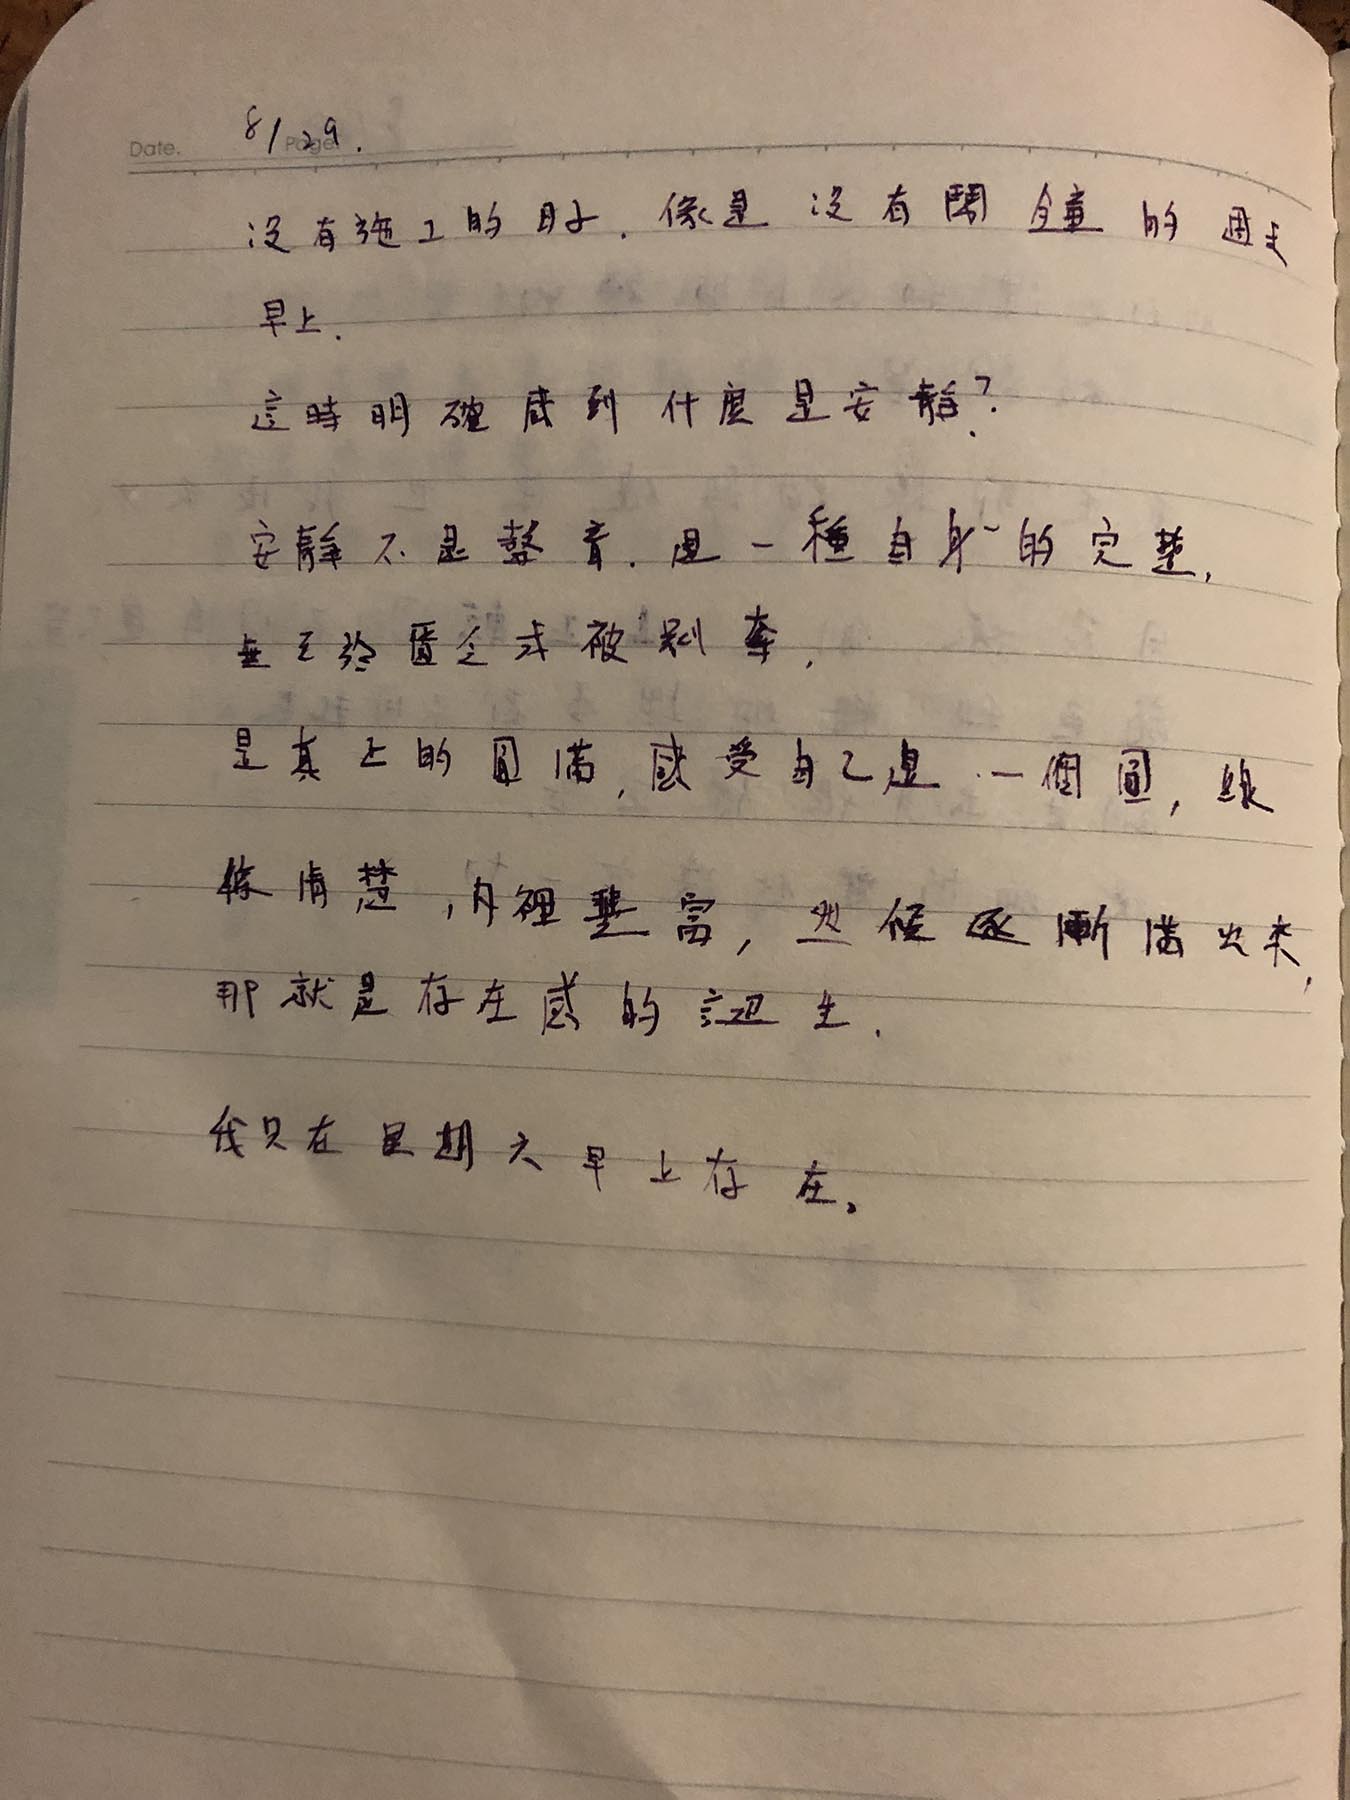 Date. 8/29. Page
沒有施工的日子. 像是沒有鬧鐘的週末
早上.
這時明確感到什麼是安靜?
安靜不是聲音. 是一種自身的完整,
無至於匱乏或被剝奪,
是真正的圓滿, 感受自己是一個圓, 線
條清楚, 內裡豐富, 然後逐漸滿出來,
那就是存在感的誕生.
我只在星期六早上存在。